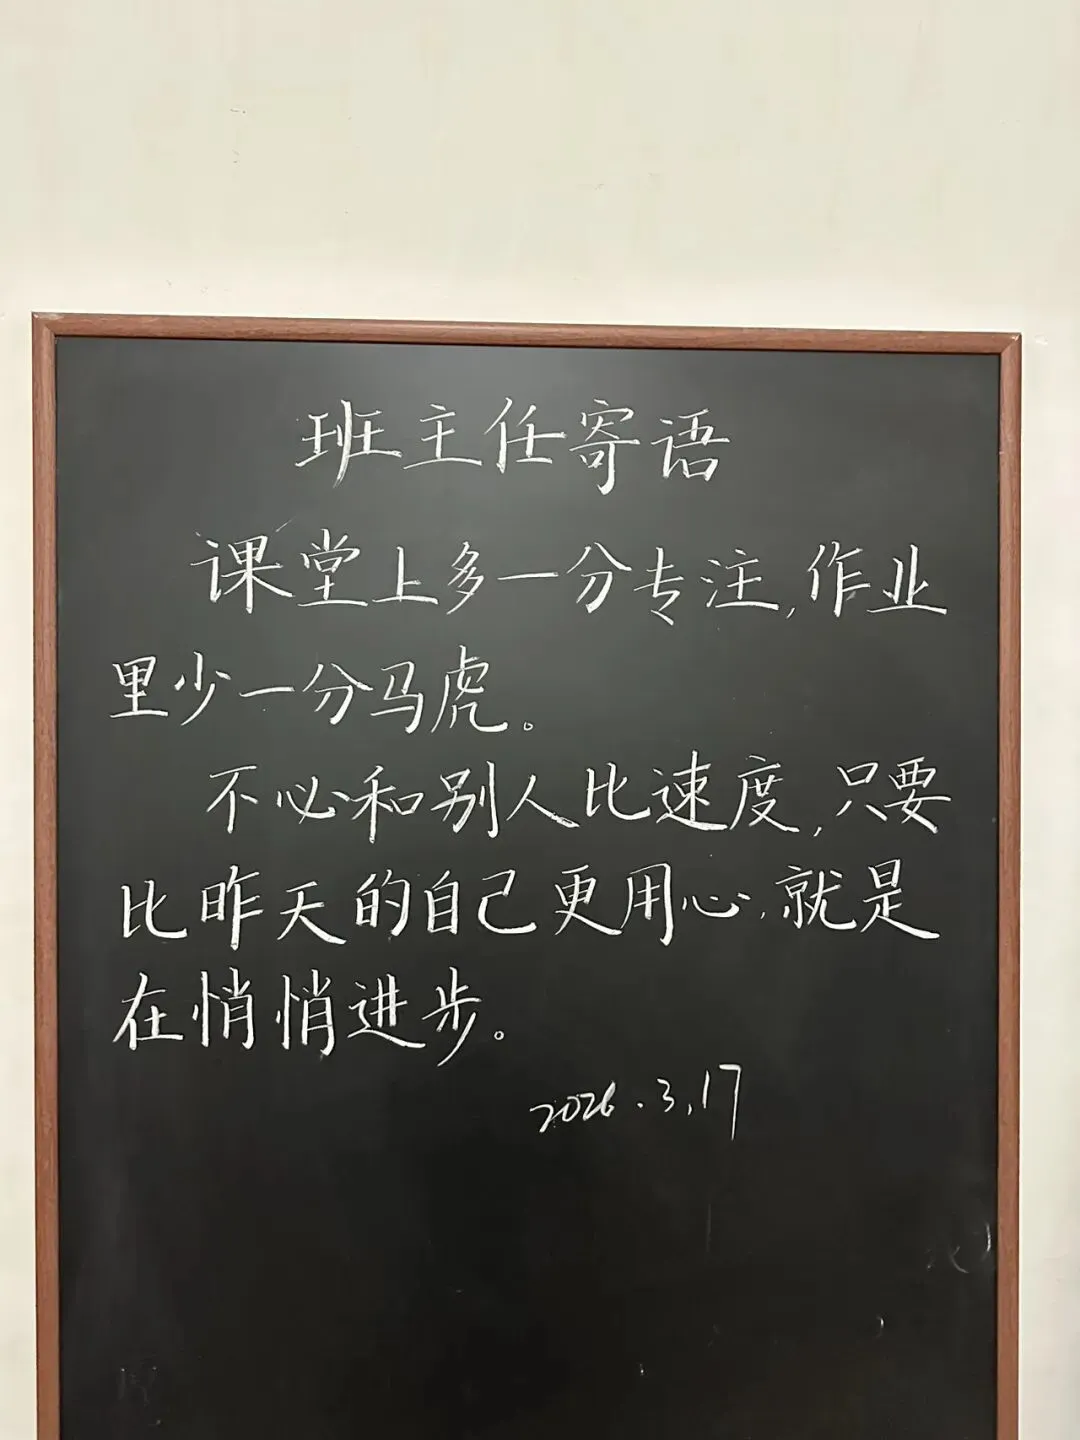 班主任寄语
课堂上多一分专注,作业
里少一分马虎。
不必和别人比速度,只要
比昨天的自己更用心,就是
在悄悄进步。
2026.3.17